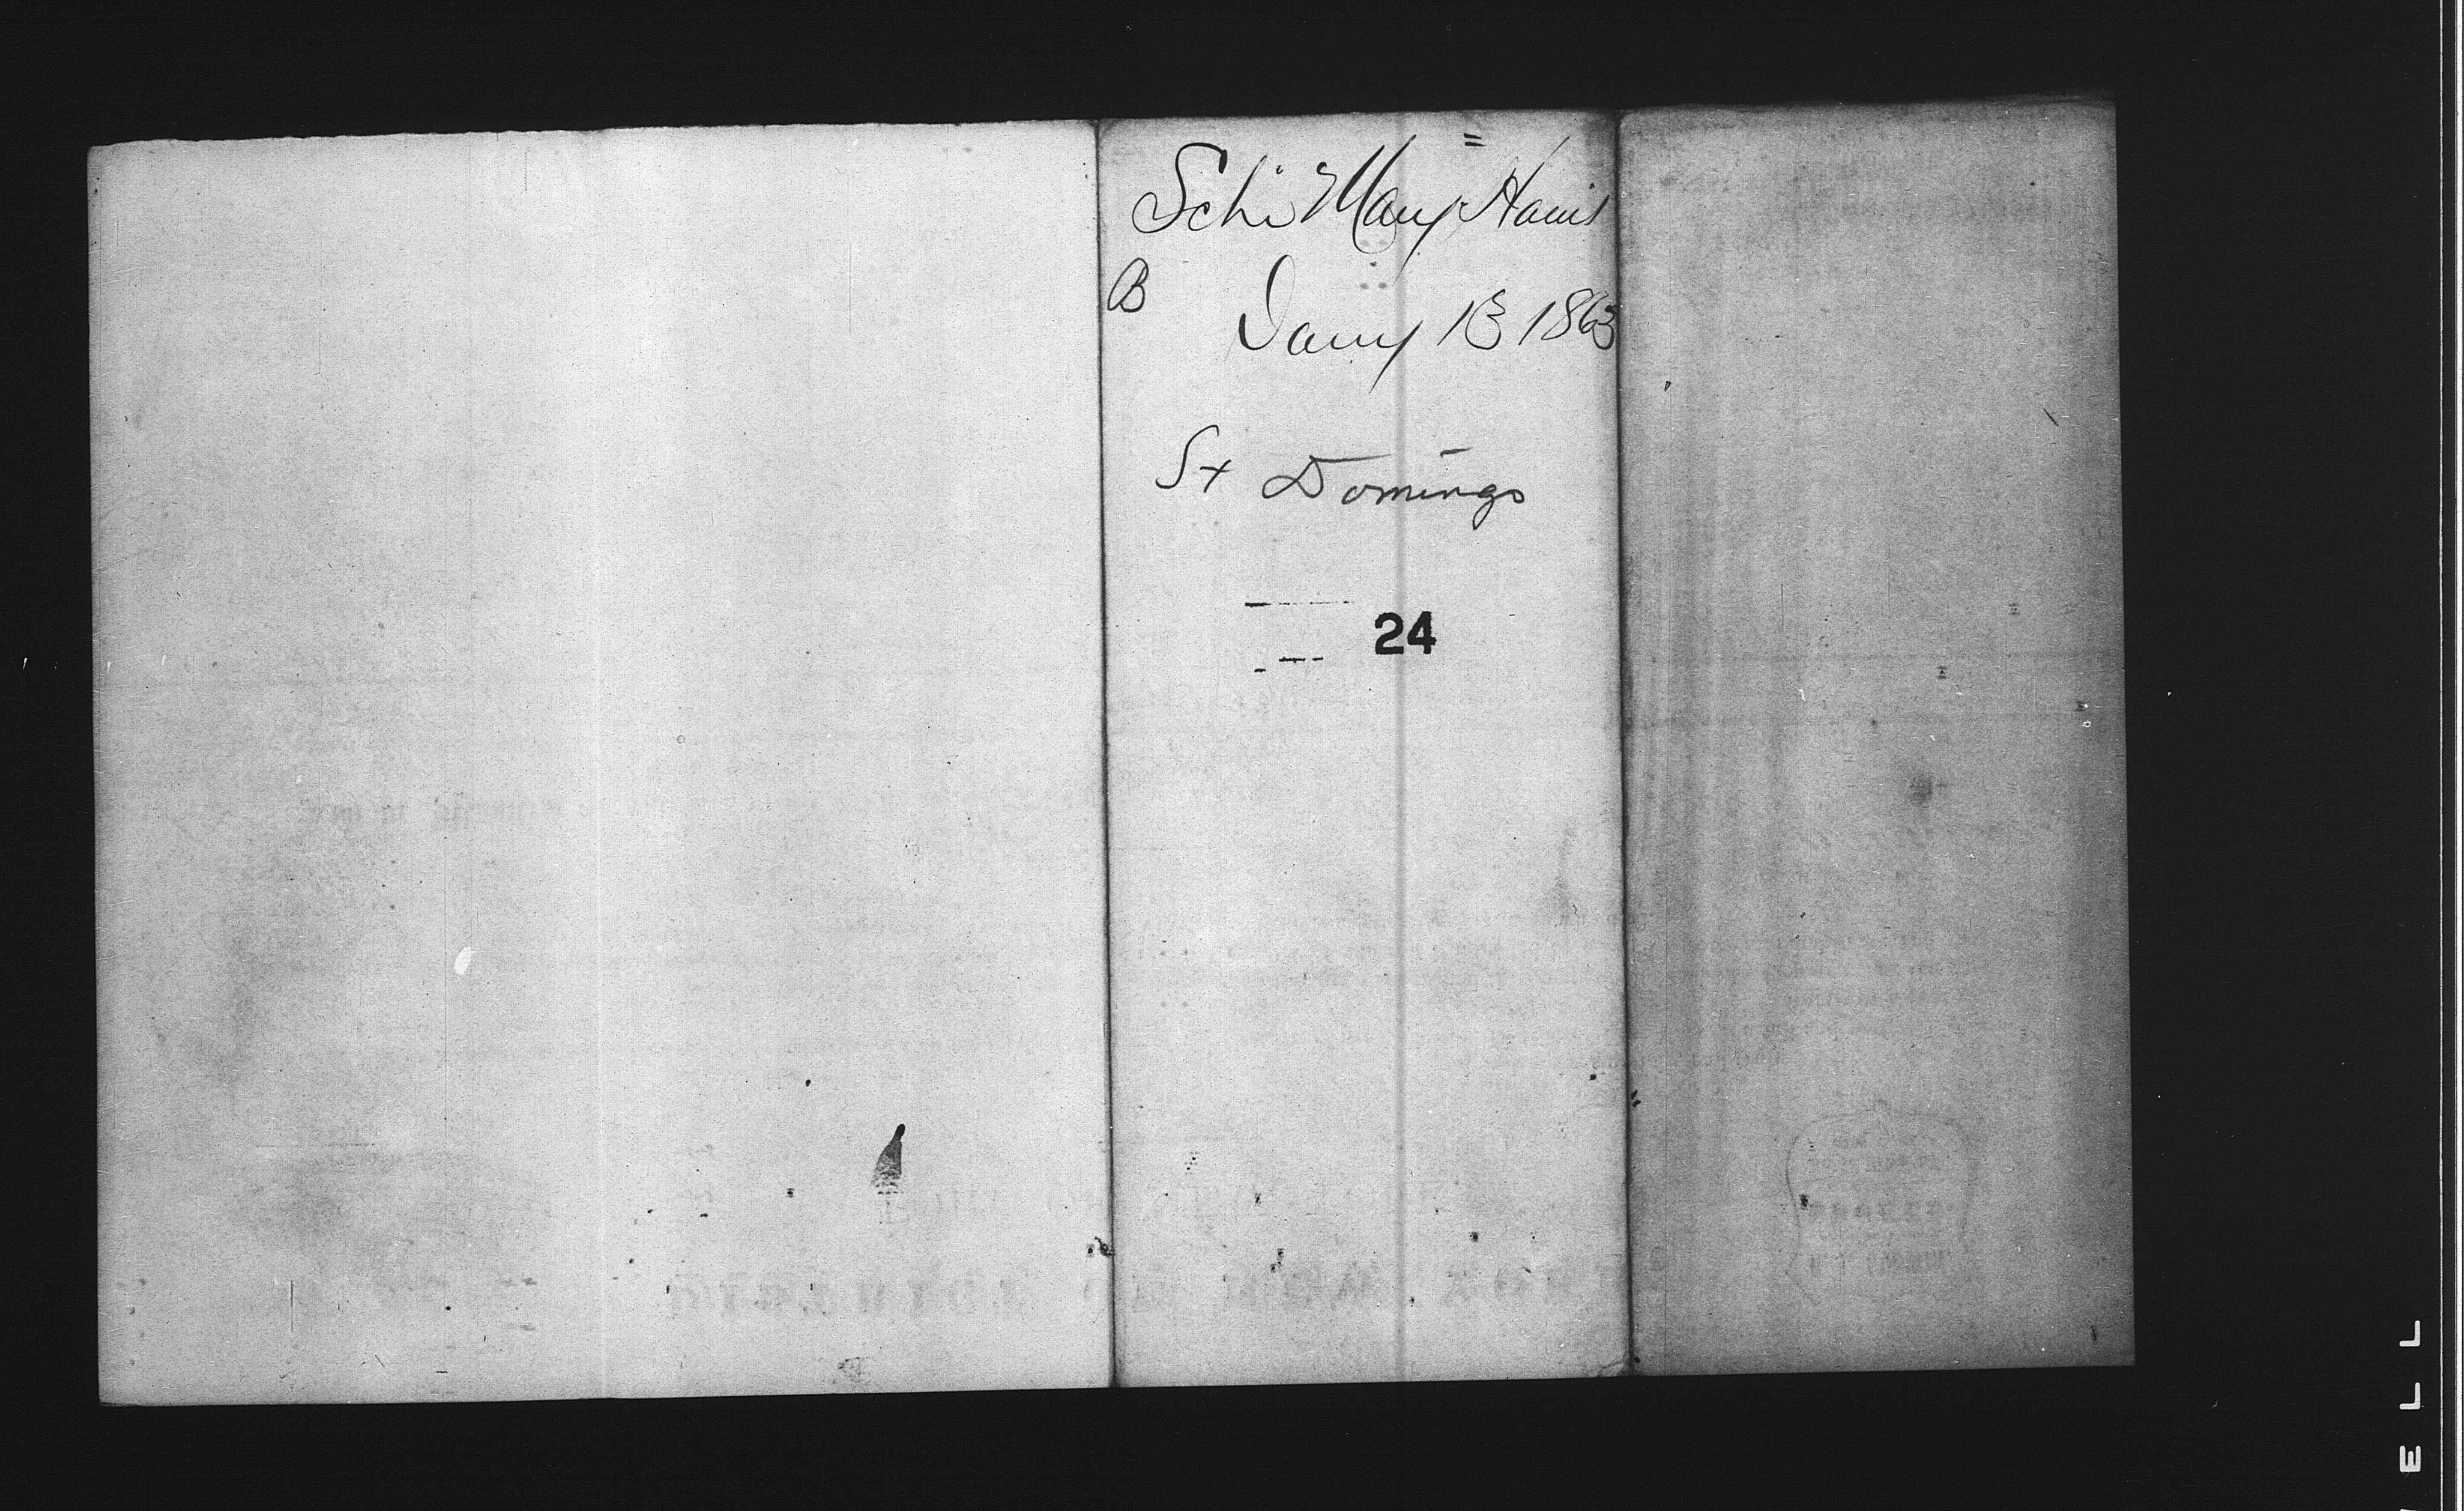 Sch: Mary Harris
B
Jany 13 1863
St Domingo
24
ELL